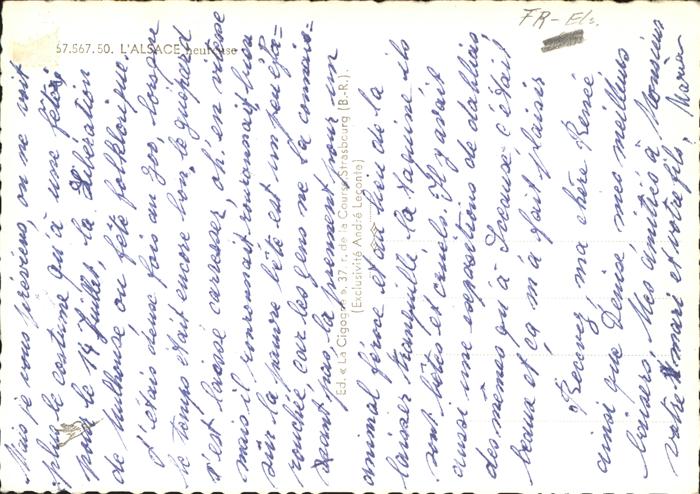 67.567.50. L'ALSACE heureuse
FR-Els.
Ed. « La Cigogne », 37, r. de la Course, Strasbourg (B.-R.).
(Exclusivité André Leconte)
Mais je vous préviens, on ne voit
plus le costume qu'à une fête:
pour le 14 Juillet, la Libération
de Mulhouse ou fête folklorique.
J'étais deux fois au zoo, lorsque
le temps était encore bon, le guépard
s'est laissé caresser, oh! en vitesse
mais il ronronnait, ronronnait, bien
sûr la pauvre bête est un peu éfa=
rouchée car les gens ne la connais=
sant pas, la prennent pour un
animal féroce et au lieu de la
laisser tranquille la taquine ils
sont bêtes et cruels. Il y avait
aussi une expositions de dahlias,
des mêmes qu'à Sceaux c'était
beaux et ça m'a fait plaisir
Recevez ma chère Renée
ainsi que Denise mes meilleurs
baisers, Mes amitiés à Monsieur
votre mari et votre fils, Marie